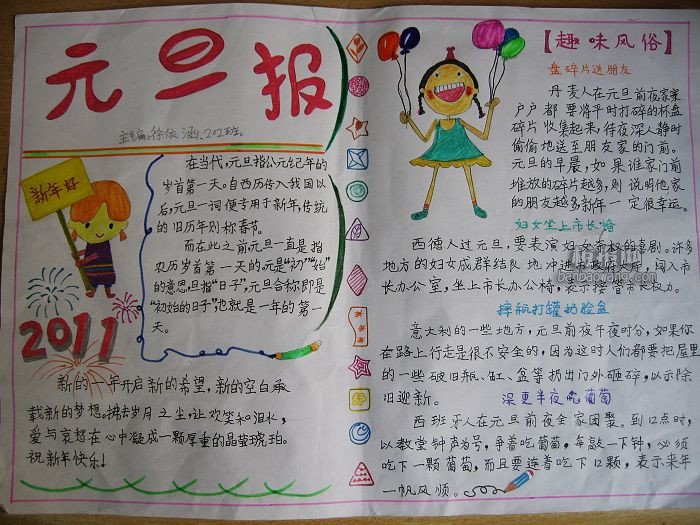 元旦报
主编:徐依涵 202班。
新年好
2011
在当代,元旦指公元纪年的
岁首第一天。自西历传入我国以
后,元旦一词便专用于新年,传统
的旧历年则称春节。
而在此之前元旦一直是指
农历岁首第一天的。元是“初”“始”
的意思,旦指“日子”,元旦合称即是
“初始的日子”,也就是一年的第一
天。
新的一年开启新的希望,新的空白承
载新的梦想。拂去岁月之尘,让欢笑和泪水,
爱与哀愁在心中凝成一颗厚重的晶莹琥珀。
祝新年快乐!
【趣味风俗】
盘碎片送朋友
丹麦人在元旦前夜家家
户户都要将平时打碎的杯盘
碎片收集起来,待夜深人静时
偷偷地送至朋友家的门前。
元旦的早晨,如果谁家门前
堆放的碎片越多,则说明他家
的朋友越多新年一定很幸运。
妇女坐上市长椅
西德人过元旦,要表演妇女夺权的喜剧。许多
地方的妇女成群结队地冲进市政府大厅,闯入市
长办公室,坐上市长办公椅,表示接管市长权力。
摔瓶打罐扔脸盆
意大利的一些地方,元旦前夜午夜时分,如果你
在路上行走是很不安全的,因为这时人们都要把屋里
的一些破旧瓶、缸、盆等扔出门外砸碎,以示除
旧迎新。
深更半夜吃葡萄
西班牙人在元旦前夜全家团聚。到12点时,
以教堂钟声为号,争着吃葡萄,每敲一下钟,必须
吃下一颗葡萄,而且要连着吃下12颗,表示来年
一帆风顺。